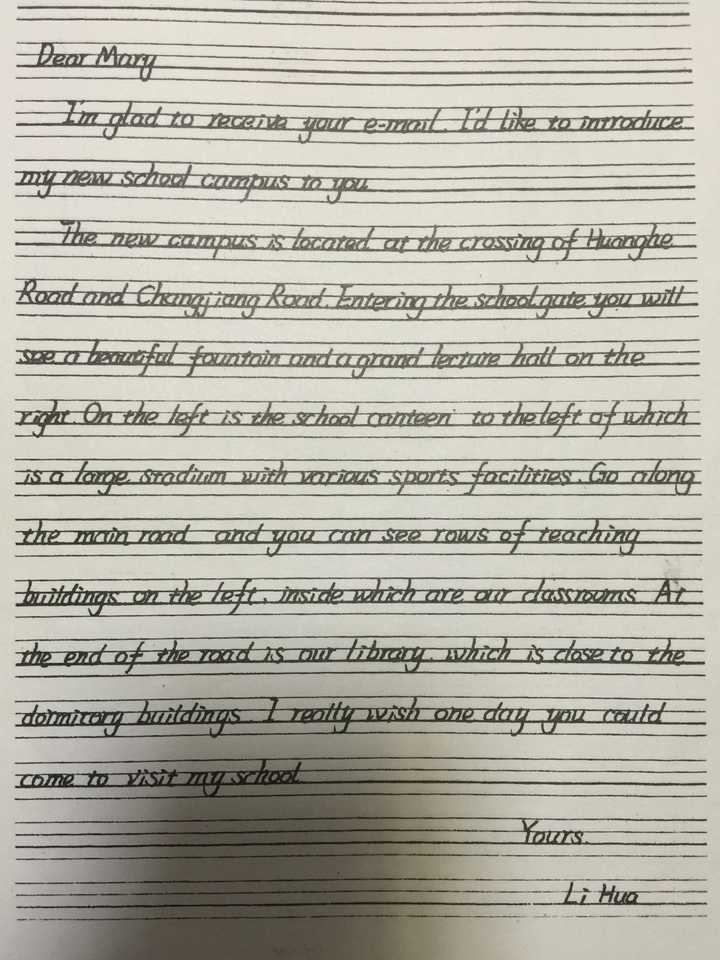 Dear Mary
I'm glad to receive your e-mail. I'd like to introduce
my new school campus to you
The new campus is located at the crossing of Huanghe
Road and Changjiang Road. Entering the school gate you will
see a beautiful fountain and a grand lecture hall on the
right. On the left is the school canteen to the left of which
is a large stadium with various sports facilities. Go along
the main road and you can see rows of teaching
buildings on the left, inside which are our classrooms At
the end of the road is our library, which is close to the
dormitory buildings. I really wish one day you could
come to visit my school
Yours.
Li Hua